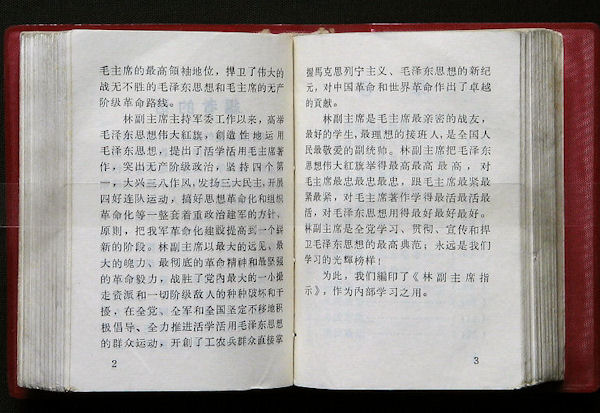 毛主席的最高領袖地位，捍卫了伟大的
战无不胜的毛泽东思想和毛主席的无产
阶级革命路线。
林副主席主持军委工作以来，高举
毛泽东思想伟大红旗，創造性地运用
毛泽东思想，提出了活学活用毛主席著
作，突出无产阶级政治，坚持四个第
一，大兴三八作风，发扬三大民主，开展
四好连队运动，搞好思想革命化和组织
革命化等一整套着重政治建军的方針、
原則，把我军革命化建設提高到一个嶄
新的阶段。林副主席以最大的远见、最
大的魄力、最彻底的革命精神和最坚强
的革命毅力，战胜了党內最大的一小撮
走资派和一切阶级敌人的种种破坏和干
擾，在全党、全军和全国坚定不移地积
极倡导、全力推进活学活用毛泽东思想
的群众运动，开創了工农兵群众直接掌
2
握馬克思列宁主义、毛泽东思想的新纪
元，对中国革命和世界革命作出了卓越
的貢献。
林副主席是毛主席最亲密的战友，
最好的学生，最理想的接班人，是全国人
民最敬爱的副統帅。林副主席把毛泽东
思想伟大红旗举得最高最高最高，对
毛主席最忠最忠最忠，跟毛主席最紧最
紧最紧，对毛主席著作学得最活最活最
活，对毛泽东思想用得最好最好最好。
林副主席是全党学习、贯彻、宣传和捍
卫毛泽东思想的最高典范；永远是我们
学习的光輝榜样！
为此，我们編印了《林副主席指
示》，作为内部学习之用。
3